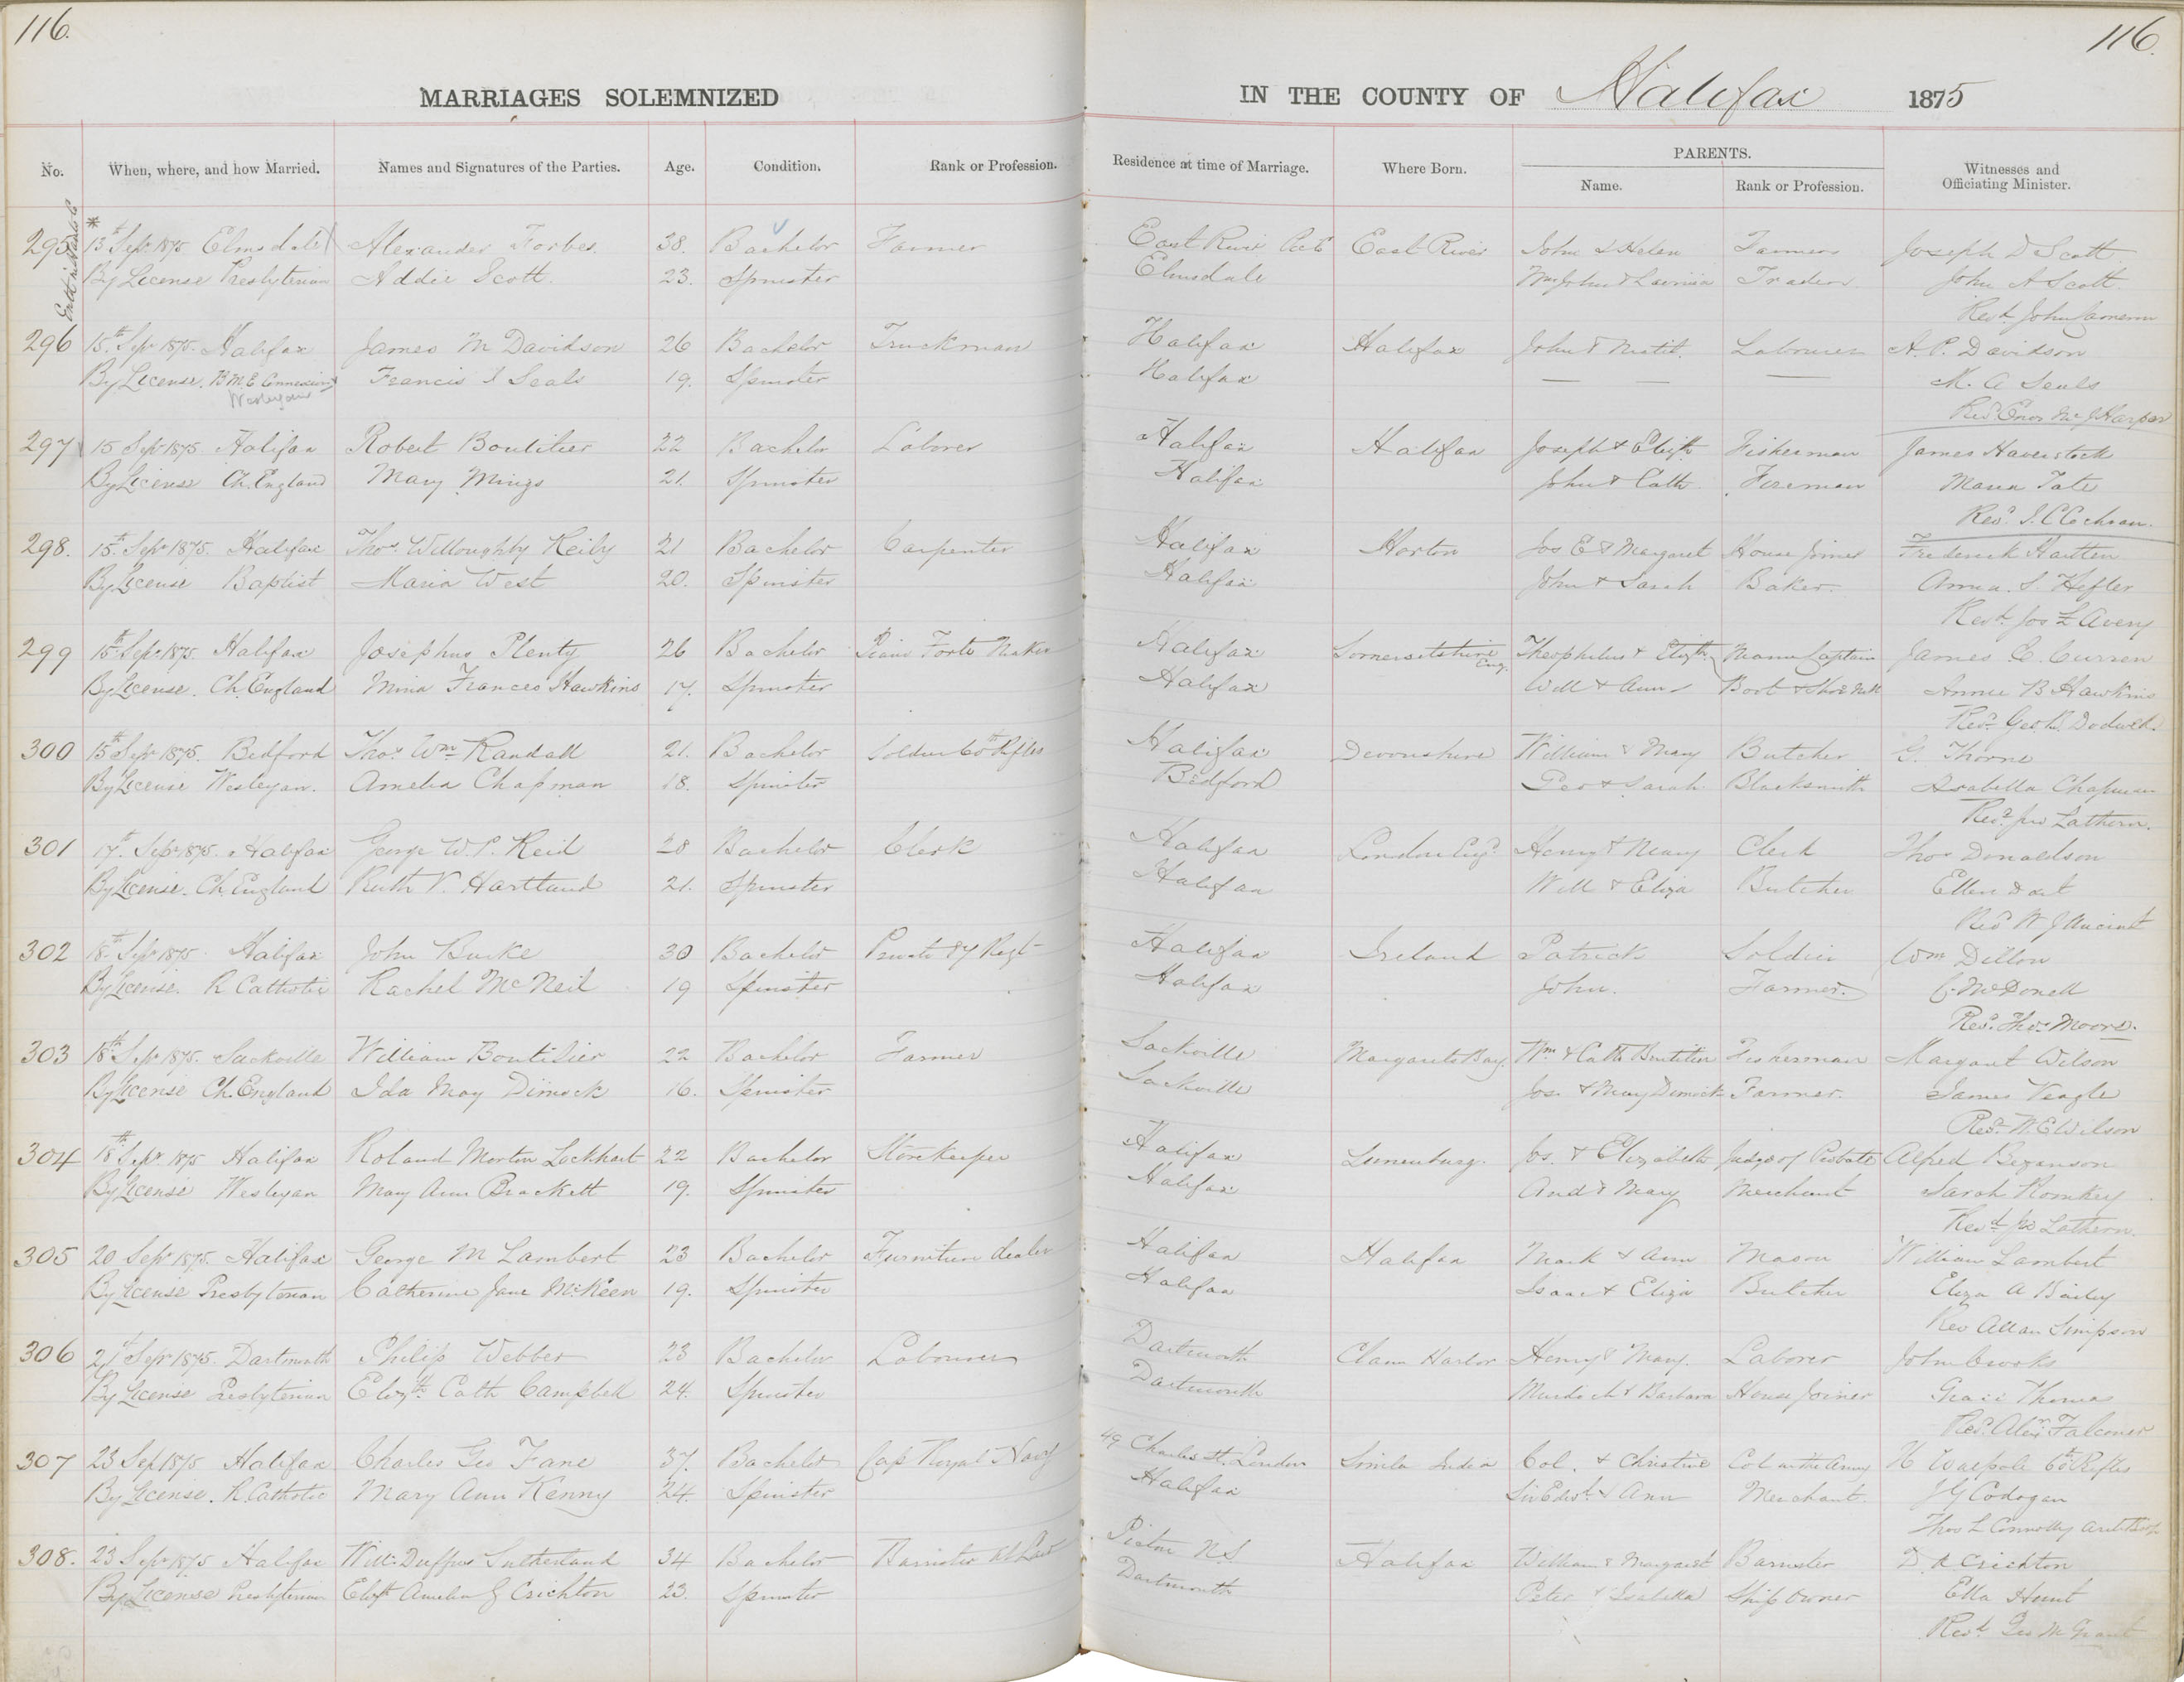 116.
116.
MARRIAGES SOLEMNIZED
IN THE COUNTY OF Halifax 1875
No. When, where, and how Married. Names and Signatures of the Parties. Age. Condition. Rank or Profession. Residence at time of Marriage. Where Born. PARENTS. Name. Rank or Profession. Witnesses and Officiating Minister.
295 * 13th Sepr 1875. Elmsdale Alexander Forbes. 38. Bachelor Farmer East River East River John & Helen Farmer Joseph D Scott
By License Presbyterian Addie Scott. 23. Spinster Elmsdale Wm John & Lavinia Trader John A Scott.
Revd John Cameron
296 15th Sepr 1875. Halifax James M Davidson 26 Bachelor Truckman Halifax Halifax John & Labourer A. P. Davidson
By License. B M E Connexion Francis Seals 19. Spinster Halifax — — — M. A Seals
Wesleyan
Revd Harper
297 15 Sepr 1875 Halifax Robert Boutilier 22 Bachelor Laborer Halifax Halifax Joseph & Elizth Fisherman James Haverstock
By License Ch. England Mary Mings 21. Spinster Halifax John & Cath Fireman Maria Tate
Revd J. C Cochran.
298. 15th Sepr 1875. Halifax Thos. Willoughby Reily 21 Bachelor Carpenter Halifax Horton Jos E & Margaret House Joiner Frederick Hartlen
By License Baptist Maria West 20. Spinster Halifax John & Sarah Baker. Anna. S. Hefler
Revd Jos L Avery
299 15th Sepr 1875. Halifax Josephus Plenty 26 Bachelor Piano Forte Maker Halifax Somersetshire Eng. Theophilus & Elizth. Captain James C. Curren
By License. Ch. England Mina Frances Hawkins 17. Spinster Halifax Will & Ann Boot & Shoe Mk Annie B Hawkins
Revd Geo B Dodwell.
300 15th Sepr 1875. Bedford Thos. Wm Randall 21. Bachelor Soldier 60th Rifles Halifax Devonshire William & Mary Butcher G. Thorne
By License Wesleyan. Amelia Chapman 18. Spinster Bedford Geo & Sarah Blacksmith Isabella Chapman
Revd Jno Lathern.
301 17th. Sepr 1875. Halifax George W. P. Reid 28 Bachelor Clerk Halifax London Engd. Henry & Mary Clerk Thos Donaldson
By License. Ch. England Ruth V. Hartland 21. Spinster Halifax Will & Eliza Butcher Ellen
Revd W J Ancient
302 18th Sepr 1875. Halifax John Burke 30 Bachelor Private 87 Regt Halifax Ireland Patrick Soldier Wm Dillon
By License. R Catholic Rachel McNeil 19 Spinster Halifax John. Farmer. C. McDonell
Revd. Thos. Moore.
303 18th Sepr 1875. Sackville William Boutilier 22 Bachelor Farmer Sackville Margarets Bay. Wm & Cath Boutilier Fisherman Margaret Wilson
By License Ch. England Ida May Dimock 16. Spinster Sackville Jos. & Mary Dimock Farmer. James Veagle
Revd. W. E Wilson
304 18th Sepr 1875 Halifax Roland Morton Lockhart 22 Bachelor Storekeeper Halifax Lunenburg. Jos. & Elizabeth Judge of Probate Alfred Bezanson
By License Wesleyan Mary Ann Brackett 19. Spinster Halifax And & Mary Merchant Sarah Romkey
Revd Jno Lathern.
305 20 Sepr 1875. Halifax George M Lambert 23 Bachelor Furniture dealer Halifax Halifax Mark & Ann Mason William Lambert
By License Presbyterian Catherine Jane McKeen 19. Spinster Halifax Isaac & Eliza Butcher Eliza A Bailey
Rev Allan Simpson
306 21 Sepr 1875. Dartmouth Philip Webber 23 Bachelor Labourer Dartmouth Clam Harbor Henry & Mary. Laborer John Crooks
By License Presbyterian Elizth Cath Campbell 24. Spinster Dartmouth Murdoch & Barbara House Joiner Grace Thomas
Revd. Alexr Falconer
307 23 Sep 1875 Halifax Charles Geo Fane 37. Bachelor Cap Royal Navy 49 Charles St. London Simla India Col. & Christine Col in the Army H Walpole 60th Rifles
By License. R. Catholic Mary Ann Kenny 24. Spinster Halifax Sir Edwd. & Ann Merchant. J G Codogan
Thos L Connolly Archbishop
308. 23 Sepr 1875 Halifax Will. Duffus Sutherland 34 Bachelor Barrister at Law Pictou N S Halifax William & Margaret Barrister D. A Crichton
By License Presbyterian Elizth Amelia G Crichton 23. Spinster Dartmouth Peter & Isabella Ship Owner Ella Hunt
Revd Geo M Grant